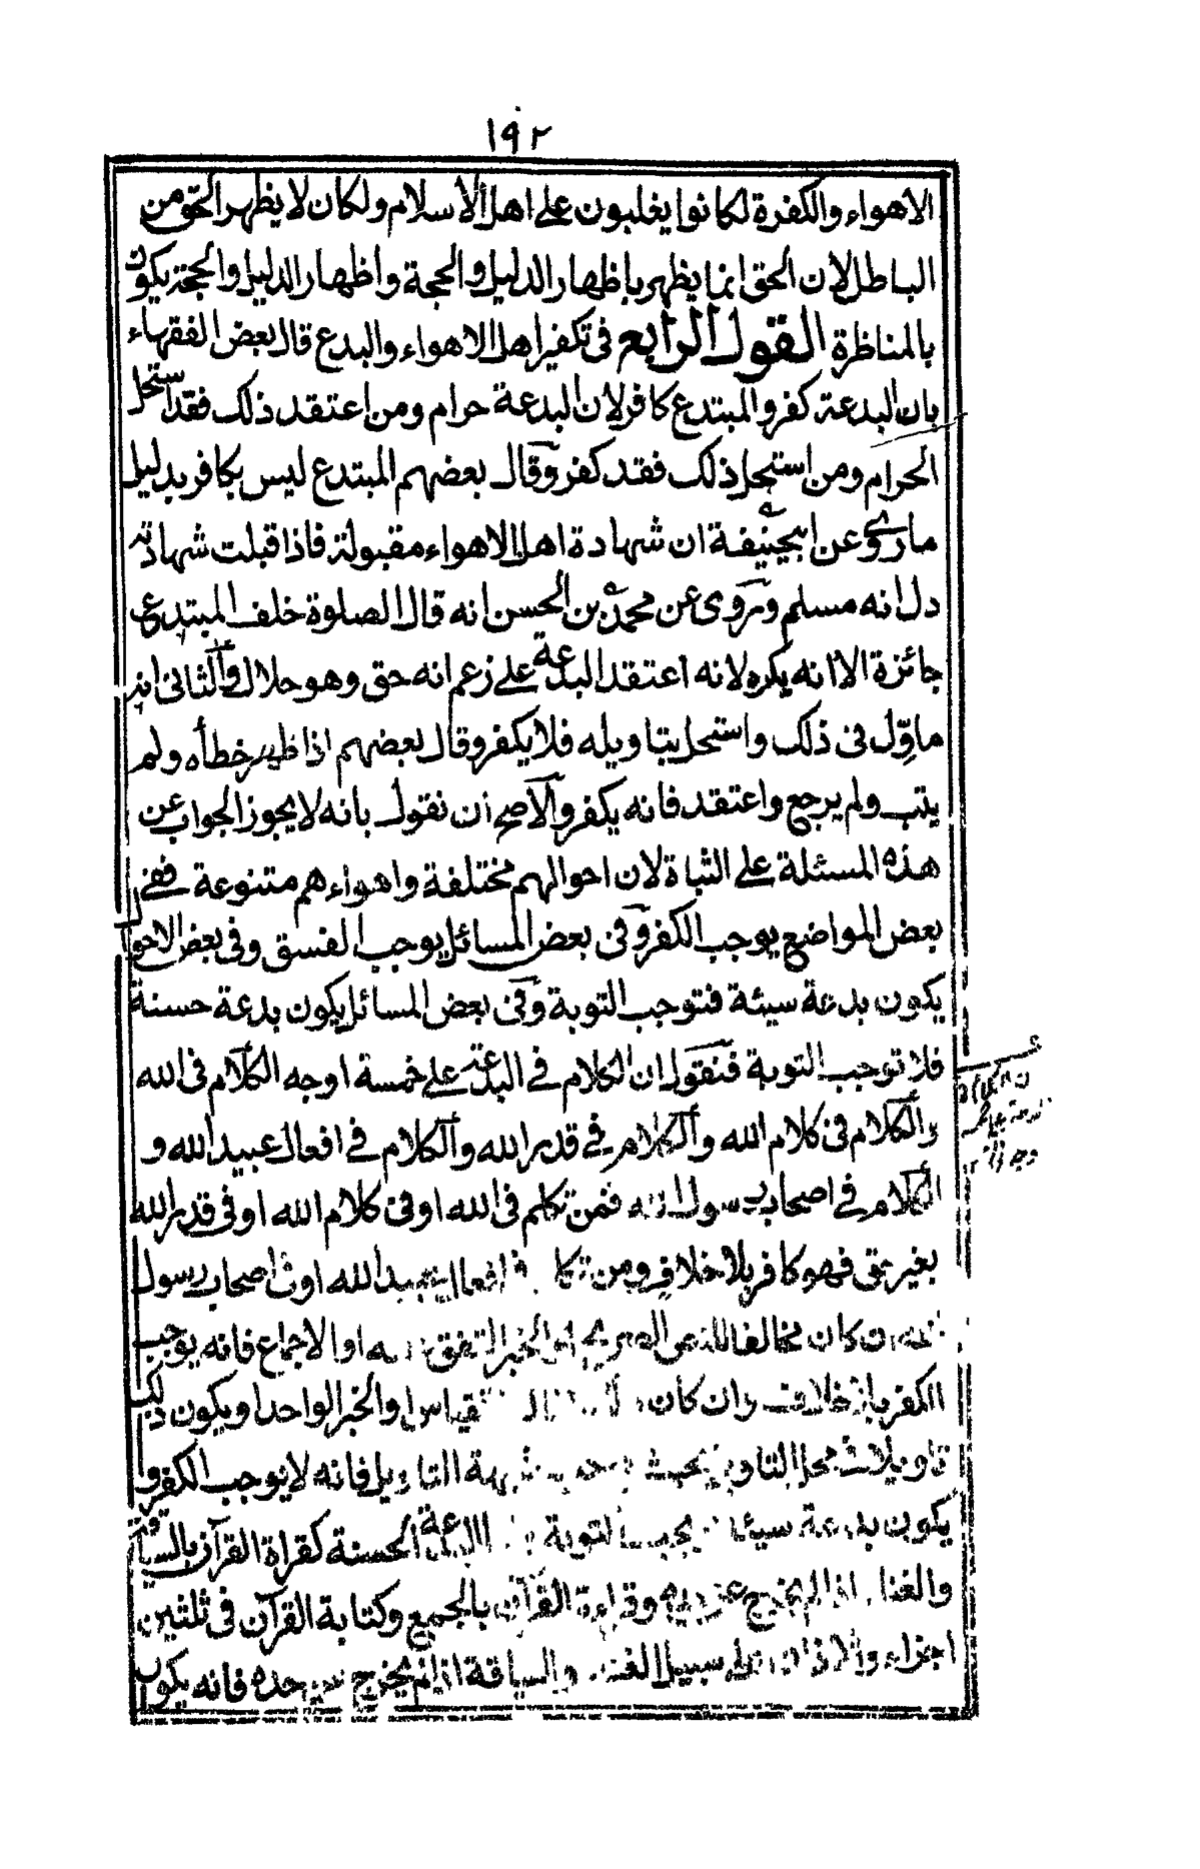 ١٩٢
الاهواء والكفرة لكانوا يغلبون على اهل الاسلام ولكان لا يظهر الحق من
الباطل لان الحق انما يظهر باظهار الدليل والحجة واظهار الدليل والحجة يكون
بالمناظرة القول الرابع فى تكفير اهل الاهواء والبدع قال بعض الفقهاء
بان البدعة كفر والمبتدع كافر لان البدعة حرام ومن اعتقد ذلك فقد استحل
الحرام ومن استحل ذلك فقد كفر وقال بعضهم المبتدع ليس بكافر بدليل
ماروى عن ابيحنيفة ان شهادة اهل الاهواء مقبولة فاذا قبلت شهادته
دل انه مسلم وروى عن محمد بن الحسن انه قال الصلوة خلف المبتدع
جائزة الا انه يكره لانه اعتقد البدعة على زعم انه حق وهو حلال والثانى انه
ماوّل فى ذلك واستحل بتاويله فلا يكفر وقال بعضهم اذا ظهر خطأه ولم
يتب ولم يرجع واعتقد فانه يكفر والاصح أن نقول بانه لا يجوز الجواب عن
هذه المسئلة على الثباة لان احوالهم مختلفة واهواءهم متنوعة ففى
بعض المواضع يوجب الكفر وفى بعض المسائل يوجب الفسق وفى بعض الاحوا
يكون بدعة سيئة فتوجب التوبة وفى بعض المسائل يكون بدعة حسنة
فلا توجب التوبة فنقول ان الكلام فى البدعة على خمسة اوجه الكلام فى الله
والكلام فى كلام الله والكلام فى قدر الله والكلام فى افعال عبيد الله و
الكلام فى اصحاب رسول الله فمن تكلم فى الله او فى كلام الله او فى قدر الله
بغير حق فهو كافر بلا خلاف ومن فى افعال عبيد الله او فى اصحاب رسول
كان مخالفا للنص الصريح او الخبر المتفق او الاجماع فانه يوجب
الكفر بلا خلاف وان كان القياس والخبر الواحد او يكون ذلك
تاويلات محل التاويل بحيث شبهة التاويل فانه لا يوجب الكفر و
يكون بدعة سيئة يجب التوبة البدعة الحسنة كقراة القرآن بالسياقة
والغناء اذا لم يخرج عن حده وقراءة القرآن بالجمع وكتابة القرآن فى ثلثين
اجزاء والاذان على سبيل الغناء والسياقة اذا لم يخرج عن حده فانه يكون